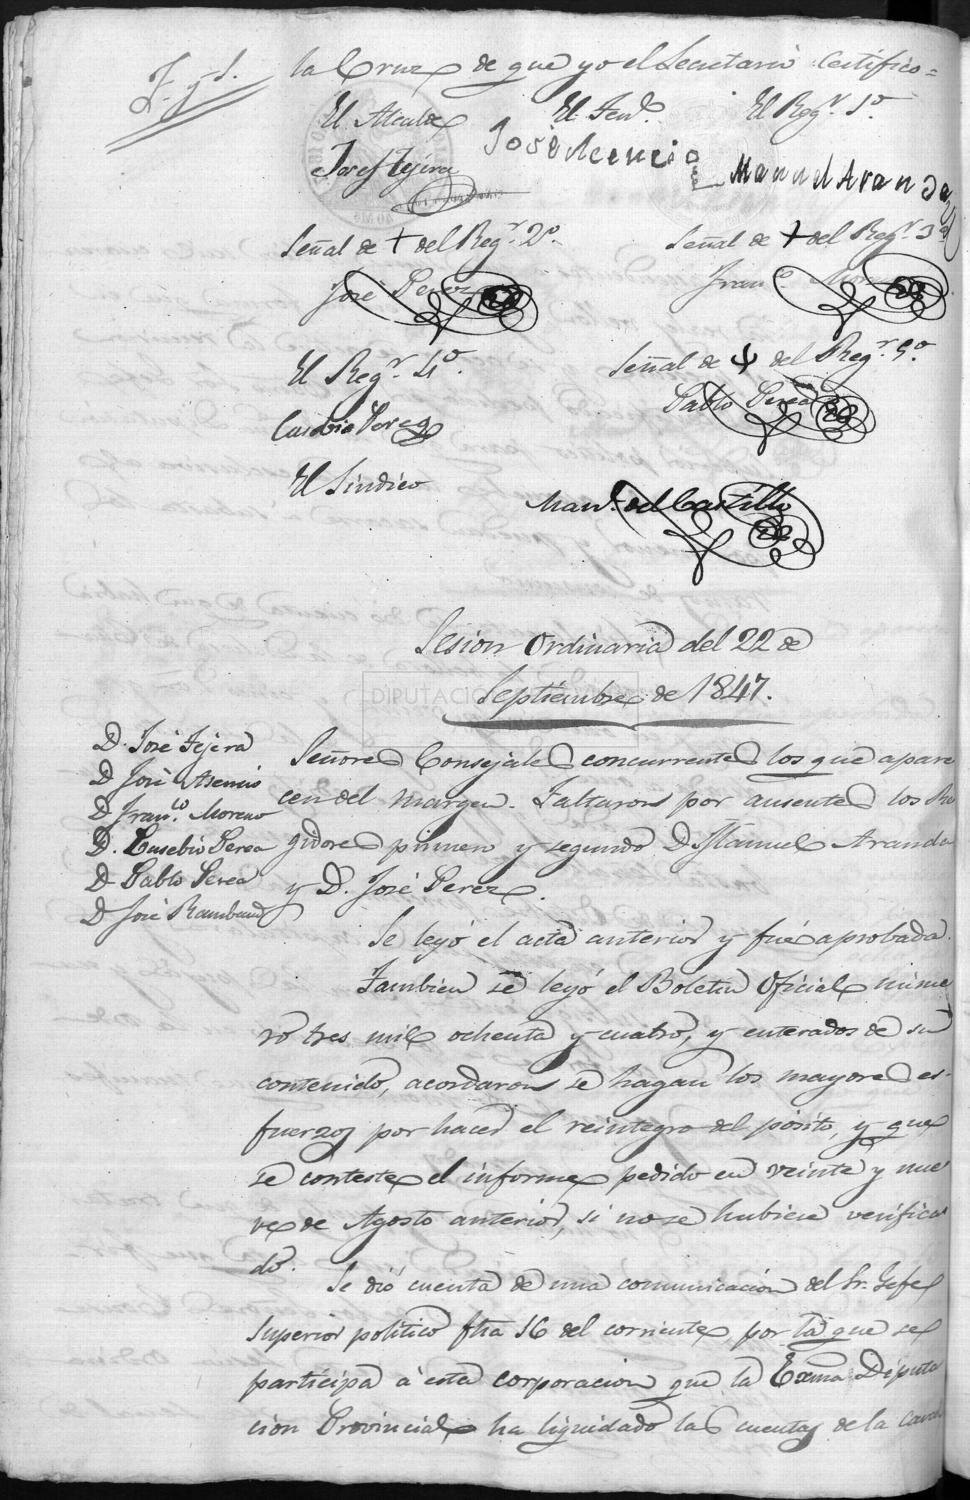 la Cruz de que yo el Secretario Certifico=
El Alcalde
El Ten.e
El Reg.r 1.o
José Tejera
José Acencio
Manuel Aranda
Señal de + del Reg.r 2.o
Señal de + del Reg.r 3
José Perez
Fran.co Moreno
El Reg.r 4.o
Señal de del Reg.r 5.o
Eusebio Perea
Pablo Perea
El Sindico
Man.l del Castillo
Sesion Ordinaria del 22 de
Septiembre de 1847.
D. José Tejera
D José Asencio
D. Fran.co Moreno
D. Eusebio Perea
D Pablo Perea
D José Rambaud
Señores Consejales concurrentes los que apare
cen del margen. Faltaron por ausentes los Re
gidores primero y segundo D. Manuel Aranda
y D. José Perez.
Se leyó el acta anterior y fué aprobada.
Tambien se leyó el Boletin Oficial nume
ro tres mil ochenta y cuatro, y enterados de su
contenido, acordaron se hagan los mayores es-
fuerzos por hacer el reintegro del pósito, y que
se conteste el informe pedido en veinte y nue
ve de Agosto anterior, si no se hubiere verifica
do.
Se dió cuenta de una comunicacion del Sr. Gefe
Superior politico fha 16 del corriente, por la que se
participa á esta corporacion que la Exma Diputa
cion Provincial, ha liquidado las cuentas de la
DIPUTACIÓ